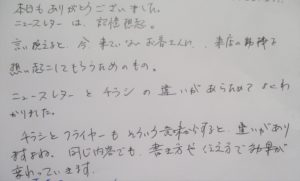 本日もありがとうございました。
ニュースレターは、記憶想起。
言い換えると、今、来ていないお客さんに、来店の動機を
思い起こしてもらうためのもの。
ニュースレターとチラシの違いがあらためてよくわ
かりました。
チラシとフライヤーもそういう意味からすると、違いがあり
ますよね。同じ内容でも、書き方や伝え方で効果が
変わっていきます。